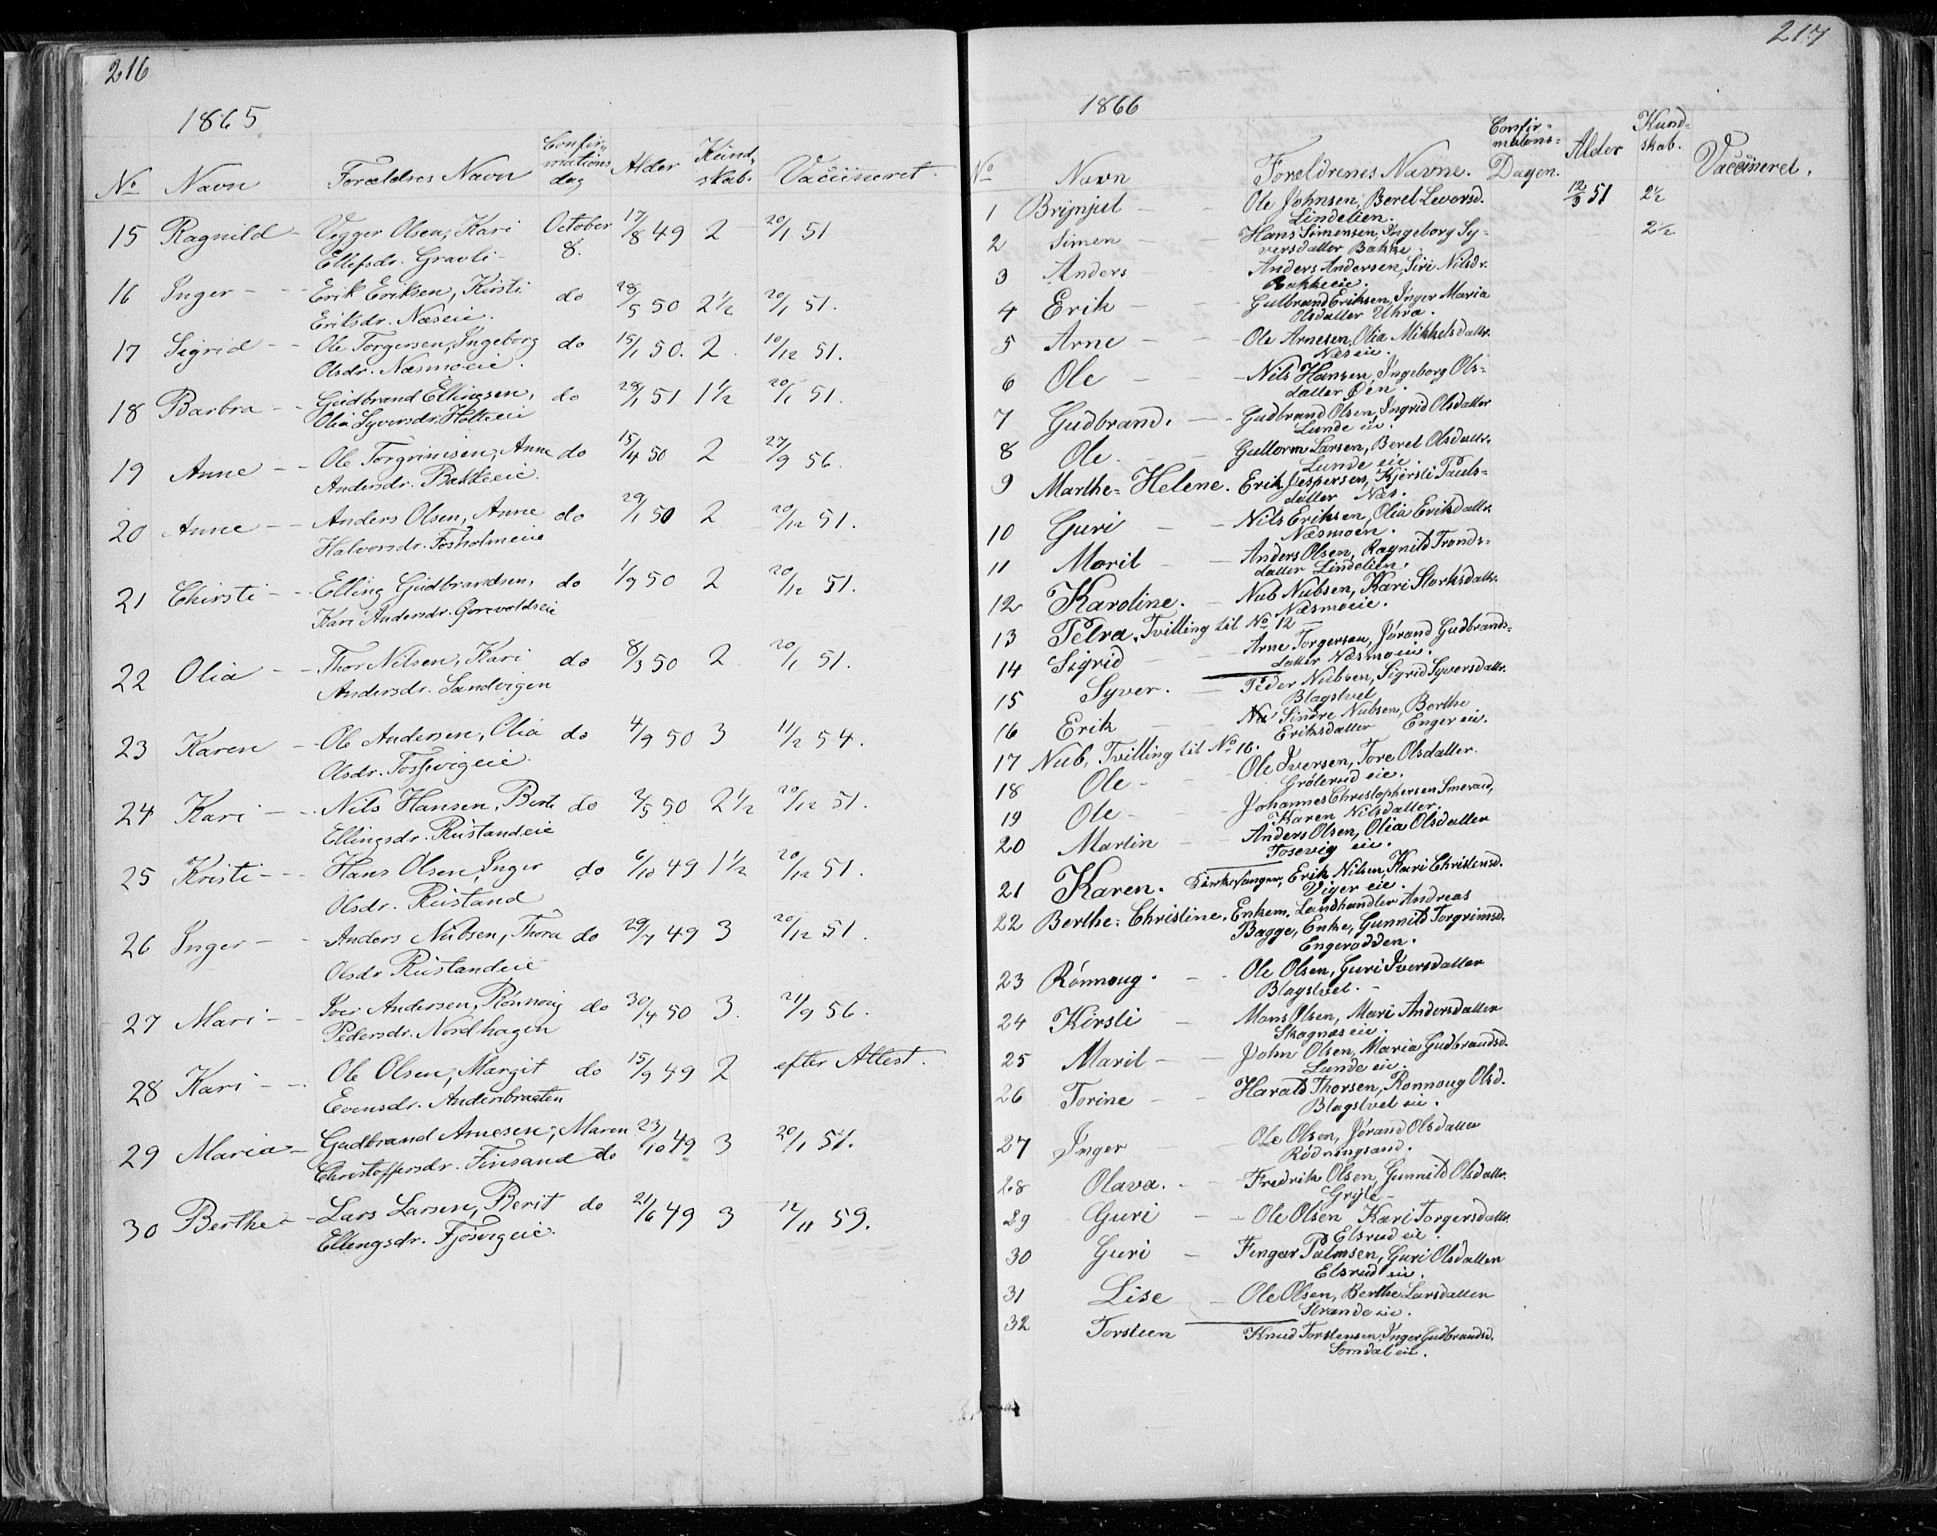 216
1865
No Navn Forældres Navn Confir-mations dag Alder Kund-skab. Vacineret.
15 Ragnild - Vegger Olsen, Kari October 17/8 49 2 20/1 51
Ellefsdr. Gravli- 8.
16 Inger - - Erik Eriksen, Kirsti do 28/5 50 2 1/2 20/1 51.
Eriksdr. Næseie.
17 Sigrid - - Ole Torgersen, Ingeborg do 15/1 50. 2. 10/12 51.
Olsdr. Næsmoeie.
18 Barbra - - Gudbrand Ellingsen, do 1 51 1 1/2 20/1 51.
Olia Syversdr. Holteeie
19 Anne - - Ole Torgrimsen, Anne do 15/4 50 2 27/9 56.
Andersdr. Bakkeeie.
20 Anne - - Anders Olsen, Anne do 29/1 50 2 20/12 51.
Halvorsdr. Fosholmeie
21 Chirsti - - Elling Gudbrandsen, do 1/9 50 2 20/12 51.
Kari Andersdr.
22 Olia - - Thor Nilsen, Kari do 8/3 50 2 20/1 51.
Andersdr. Sandvigen
23 Karen - Ole Andersen, Olia do 4/9 50 3 11/2 54.
Olsdr. Fossvigeie.
24 Kari - - Nils Hansen, Berte do 2/5 50 2 1/2 20/12 51.
Ellingsdr. Rustandeie
25 Kristi - - Hans Olsen, Inger do 6/10 49 1 1/2 20/12 51.
Olsdr. Rustand
26 Inger - - Anders Nubsen, Thora do 29/7 49 3 20/12 51.
Olsdr Rustandeie
27 Mari - - Iver Andersen, Rönnoug do 30/4 50 3. 21/9 56.
Pedersdr. Nordhagen
28 Kari - - Ole Olsen, Margit do 15/9 49 2 efter Attest.
Evensdr. Andersbraaten
29 Maria - Gudbrand Arnesen, Maren 23/10 49 3 20/1 51.
Christoffersdr. Finsand do
30 Berthe - Lars Larsen, Berit do 21/6 49 3 12/11 59.
Ellingsdr. Fjösvigeie.
217
1866
No Navn Foreldrenes Navne. Confir-mations-Dagen. Alder Kund-skab. Vaccineret.
1 Brynjul - - Ole Johnsen, Beret Levorsd. 12/9 51 2 1/2
Lindelien.
2 Simen - - Hans Simensen, Ingeborg Sy- 2 1/2
versdatter Bakke.
3 Anders - - Anders Andersen, Siri Nilsdr.
Bakkeeie.
4 Erik - - Gulbrand Eriksen, Inger Maria
Olsdatter Uhra.
5 Arne - - Ole Arnesen, Olia Mikkelsdattr.
Næs eie.
6 Ole - - Nils Hansen, Ingeborg Ols-
datter Øen.
7 Gudbrand. - - Gudbrand Olsen, Ingrid Olsdatter
Lunde eie.
8 Ole. - - Guttorm Larsen, Beret Olsdattr.
Lunde eie.
9 Marthe-Helene. Erik Jespersen, Kjersti Pauls-
datter Næs.
10 Guri - - Nils Eriksen, Olia Eriksdattr.
Næsmoen.
11 Marit - - Anders Olsen, Ragnild Tronds-
datter Lindelien.
12 Karoline. - Nub Nubsen, Kari Storksdattr.
Næsmoeie.
13 Petra, Tvilling til No 12 -
14 Sigrid - - Arne Torgersen, Jörand Gudbrands-
datter Næsmoeie.
15 Syver. - - Peder Nubsen, Sigrid Syversdattr.
Blagstvet
16 Erik - - Sindre Nubsen, Berthe
Eriksdatter Enger eie.
17 Nub, Tvilling til No 16.
18 Ole - - Ole Iversen, Tore Olsdatter.
Grölerud eie.
19 Ole - - Johannes Christophersen Smerud,
Karen Nilsdatter.
20 Martin - - Anders Olsen, Olia Olsdatter
Fosevig eie.
21 Karen. Kirkesanger, Erik Nilsen, Kari Christensd.
Viger eie.
22 Berthe-Christine, Enkem. Landhandler Andreas
Bagge, Enke, Gunnild Torgrimsd.
Engerodden.
23 Rönnoug. - - Ole Olsen, Guri Iversdatter
Blagstvet. -
24 Kirsti - Mons Olsen, Mari Andersdatter
Skagnæs eie.
25 Marit - - John Olsen, Maria Gudbrandsd.
Lunde eie.
26 Torine - - Harald Thorsen, Ronnoug Olsd.
Blagstvet eie.
27 Inger - - Ole Olsen, Jörand Olsdatter
Rödningsand.
28 Olava. - - Fredrik Olsen, Gunnild Olsdattr.
29 Guri - - Ole Olsen Kari Torgersdattr.
Elsrud eie.
30 Guri - Fingar Palmsen, Guri Olsdatter
Elsrud eie.
31 Lise - Ole Olsen, Berthe Larsdatter
Strande eie.
32 Torsteen Knud Torstensen, Inger Gudbrandsd.
Somdal eie.